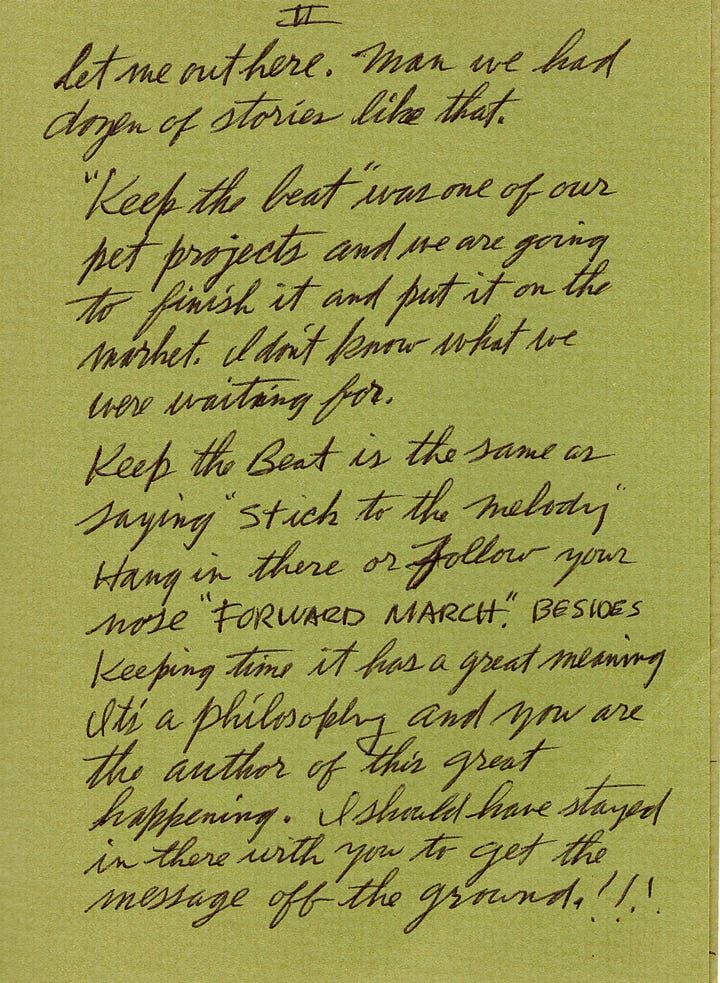 II
Let me out here. Man we had
dozen of stories like that.
"Keep the beat" was one of our
pet projects and we are going
to finish it and put it on the
market. I don't know what we
were waiting for.
Keep the Beat is the same as
saying "stick to the melody"
Hang in there or Follow your
nose "FORWARD MARCH". BESIDES
Keeping time it has a great meaning
It's a philosophy and you are
the author of this great
happening. I should have stayed
in there with you to get the
message off the ground.!!!